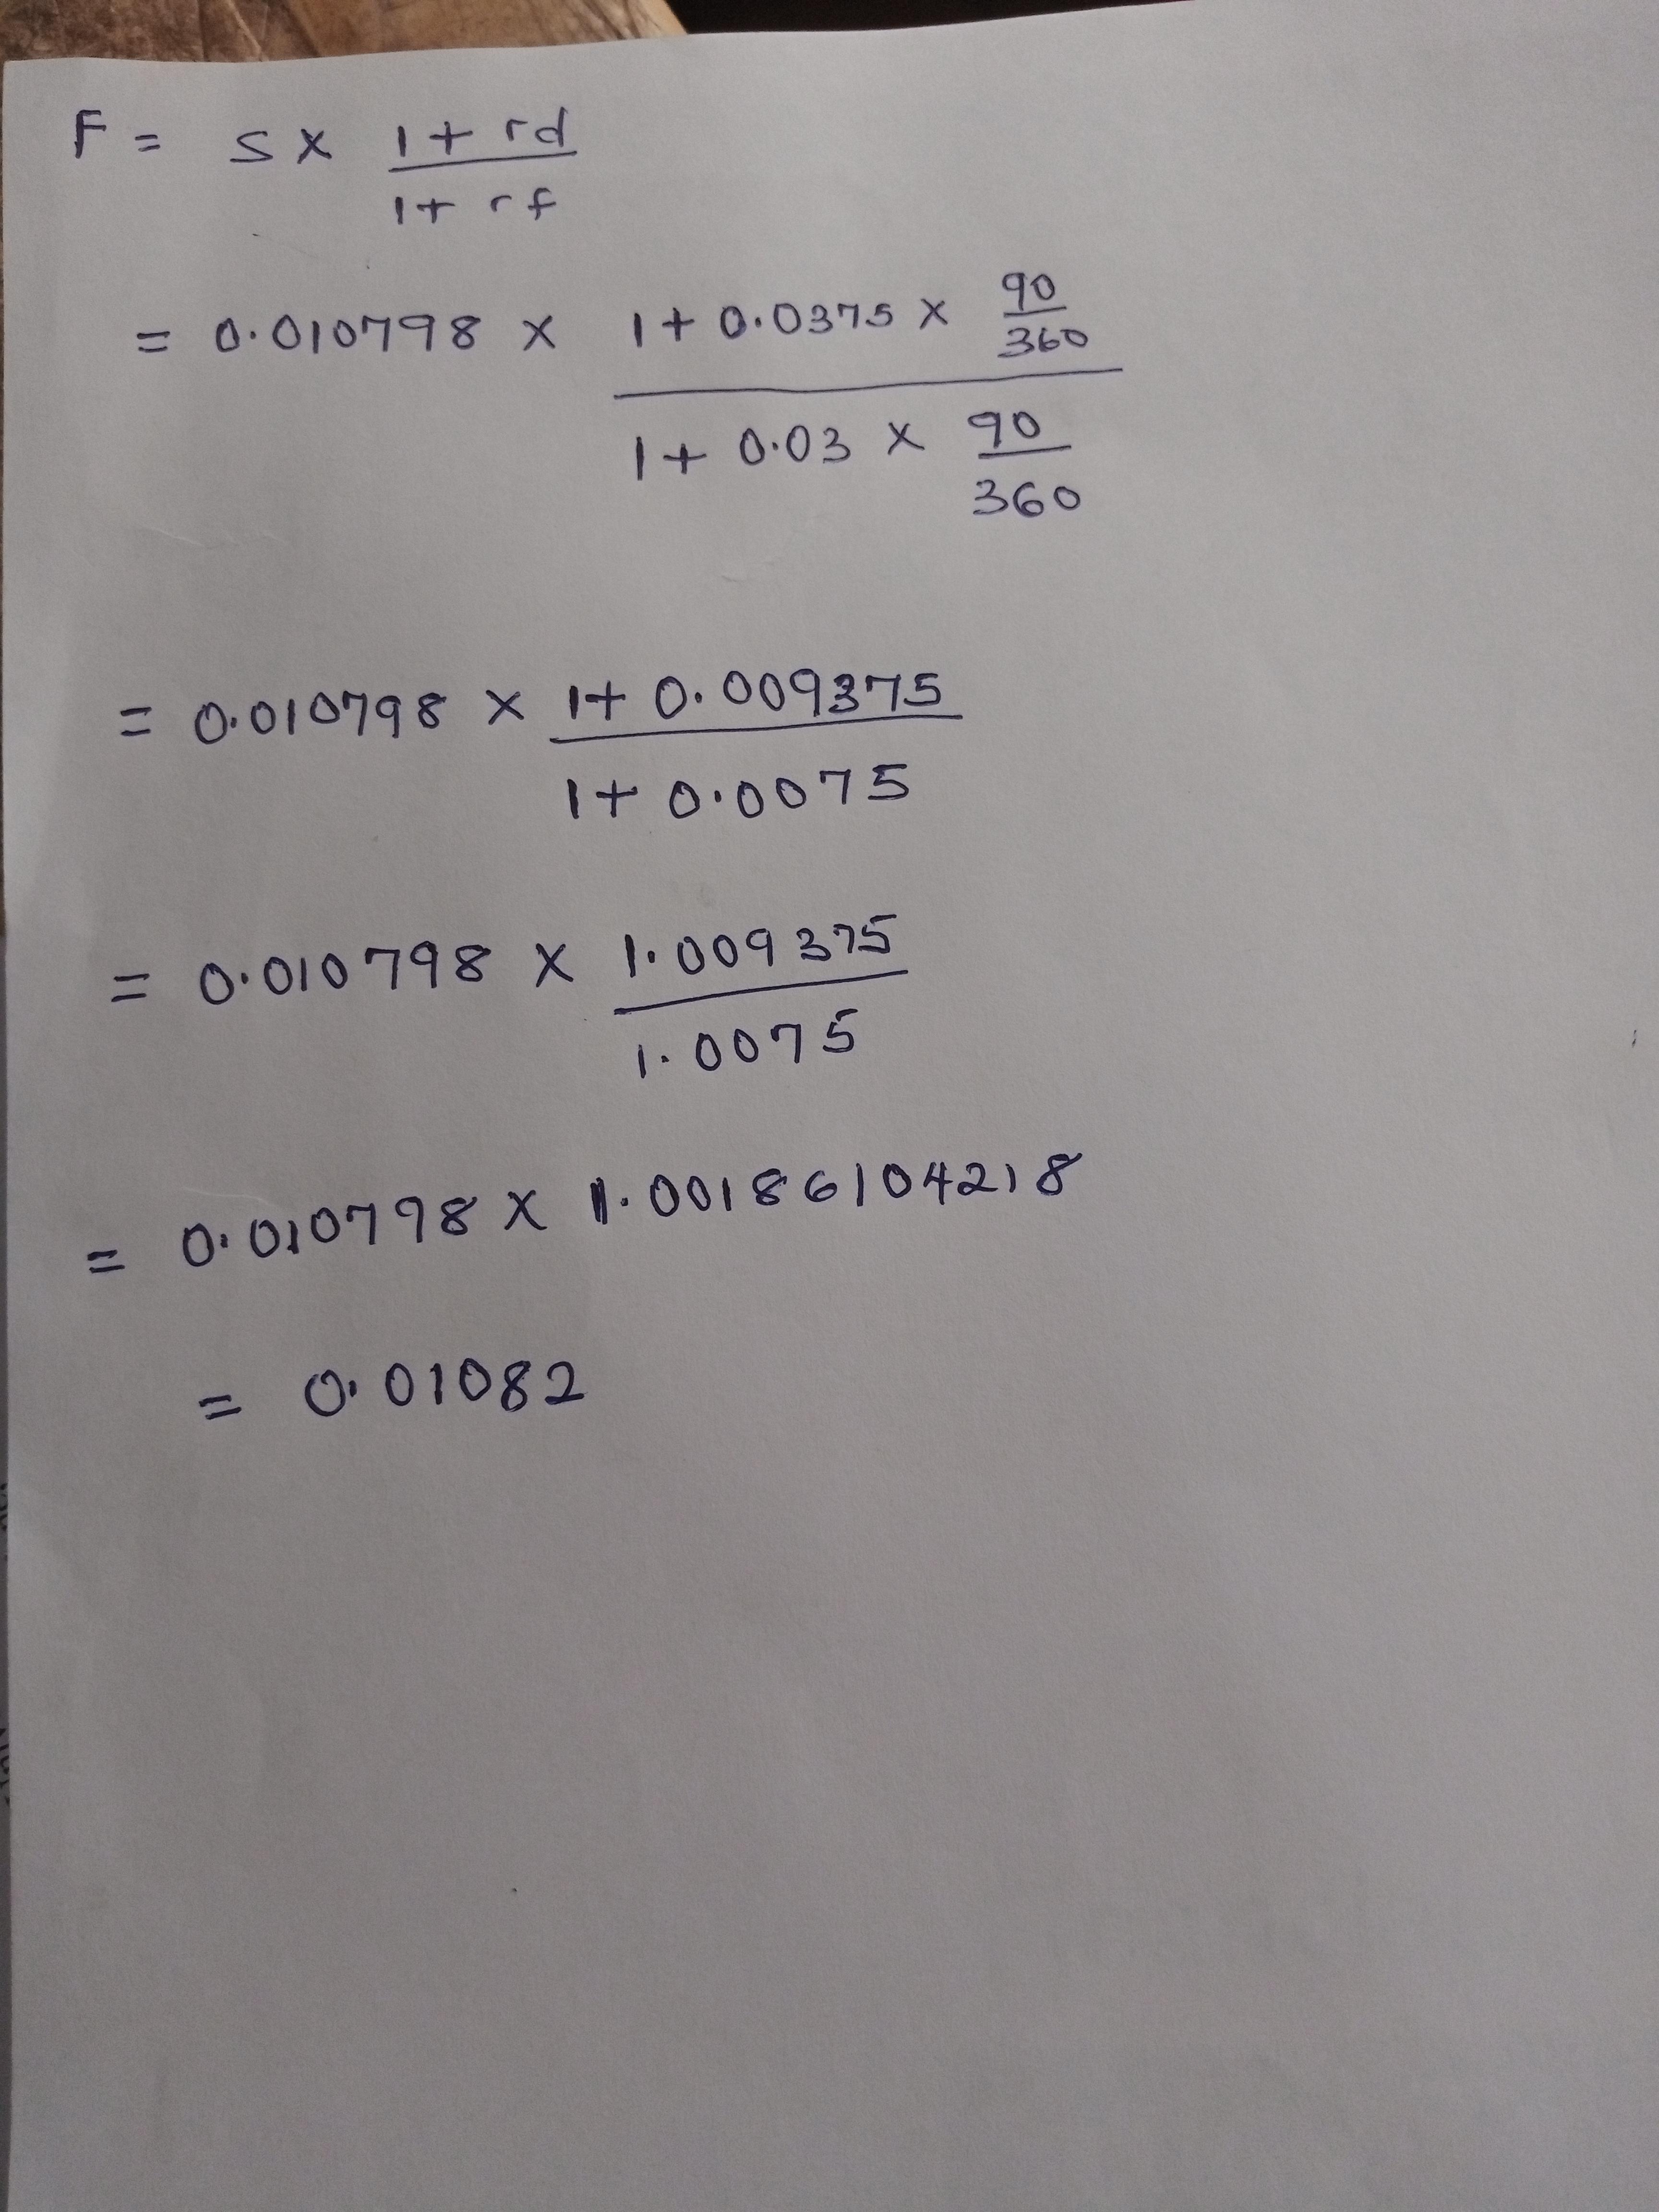 F = S x 1 + rd
1 + rf
= 0.010798 x 1 + 0.0375 x 90
360
1 + 0.03 x 90
360
= 0.010798 x 1+ 0.009375
1 + 0.0075
= 0.010798 x 1.009375
1.0075
= 0.010798 x 1.00186104218
= 0.01082